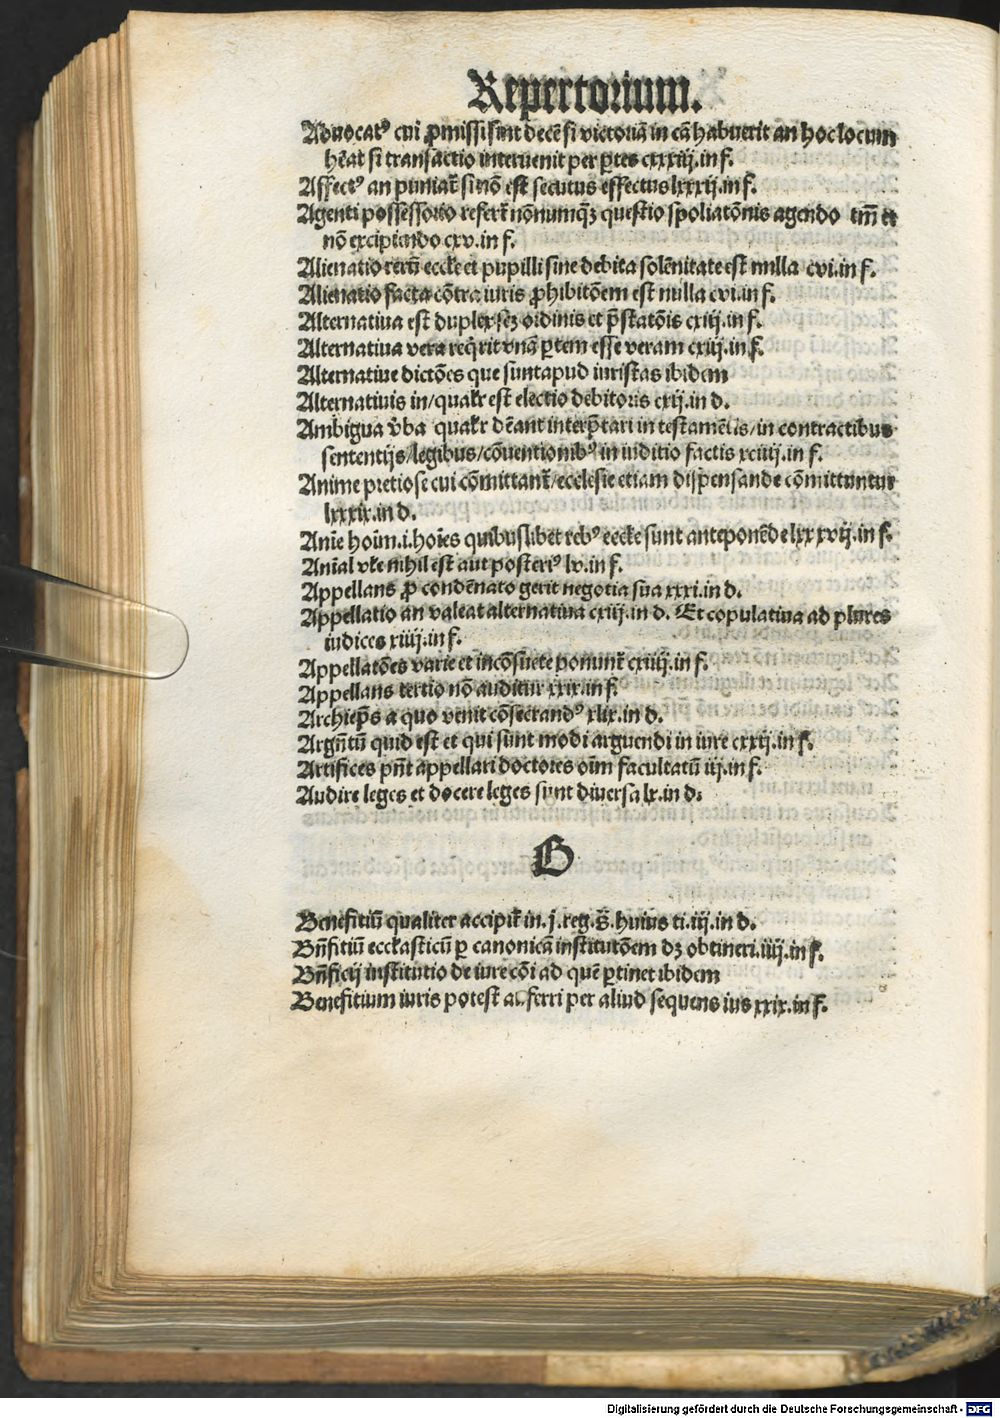 Repertorium.
Aduocatꝰ cui ꝓmissi sint decē si victoriā in cā habuerit an hoc locum
hēat si transactio interuenit per ꝑtes cxxxiij. in f.
Affectꝰ an puniat̄ si nō est secutus effectus lxxxij. in f.
Agenti possessorio refert̄ nōnumqꝫ questio spoliatōnis agendo tm̄ et
nō excipiendo cxv. in f.
Alienatio rerū eccl̄e et pupilli sine debita solēnitate est nulla cvi. in f.
Alienatio facta cōtra iuris ꝓhibitōem est nulla cvi. in f.
Alternatiua est duplex sꝫ ordinis et p̄statōis cxiij. in f.
Alternatiua vera req̄rit vnā ꝑtem esse veram cxiij. in f.
Alternatiue dictōes que sunt apud iuristas ibidem
Alternatiuis in/qualr̄ est electio debitoris cxij. in d.
Ambigua v̄ba qualr̄ dēant interp̄tari in testamētis/in contractibus
sententijs/legibus/cōuentionibꝰ in iuditio factis xciiij. in f.
Anime pretiose cui cōmittant̄/ecclesie etiam dispensande cōmittuntur
lxxxix. in d.
Anie hoim̄ .i. hoīes quibuslibet rebꝰ eccl̄e sunt anteponēde lxxxvij. in f.
Anīal vl̄e nihil est aut posteriꝰ lv. in f.
Appellans ꝓ condēnato gerit negotia sua xxxi. in d.
Appellatio an valeat alternatiua cxiij. in d. Et copulatiua ad plures
iudices xiiij. in f.
Appellatōes varie et incōsuete ponunt̄ cxiiij. in f.
Appellans tertio nō auditur xxix. in f.
Archiep̄s a quo venit cōsecrandꝰ xlix. in d.
Argn̄tū quid est et qui sunt modi arguendi in iure cxxij. in f.
Artifices pn̄t appellari doctores oīm facultatū iij. in f.
Audire leges et docere leges sunt diuersa lx. in d.
B
Benefitiū qualiter accipit̄ in. j. reg. s̄. huius ti. iij. in d.
Bn̄fitiū eccl̄asticū ꝑ canonicā institutōem dꝫ obtineri. iiij. in f.
Bn̄ficij institutio de iure cōi ad quē ꝑtinet ibidem
Benefitium iuris potest auferri per aliud sequens ius xxix. in f.
Digitalisierung gefördert durch die Deutsche Forschungsgemeinschaft - DFG